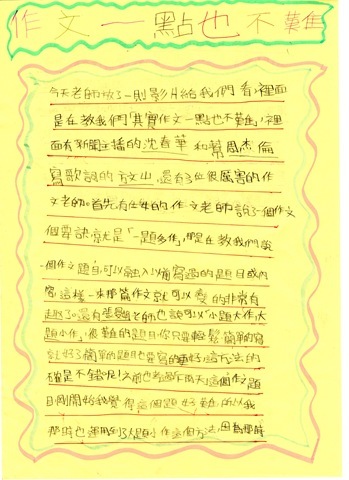 作文一點也不難
今天老師放了一則影片給我們看,裡面
是在教我們「其實作文一點也不難」,裡
面有新聞主播的沈春華和幫周杰倫
寫歌詞的方文山,還有3位很厲害的作
文老師。首先有位的作文老師說了一個作文
個要訣就是「一題多作」,是在教我們說
一個作文題目,可以融入以前寫過的題目或內
容,這樣一來那篇作文就可以變的非常有
趣了。還有老師也說可以「小題大作、大
題小作」,很難的題目你只要輕鬆、簡單的寫
就好了,簡單的題目也要寫的更好,這方法的
確是不錯呢!之前也考過「下雨天」這個作文題
目,剛開始我覺得這個題好難,所以我
那時也運用到了大題小作這個方法,因為那時